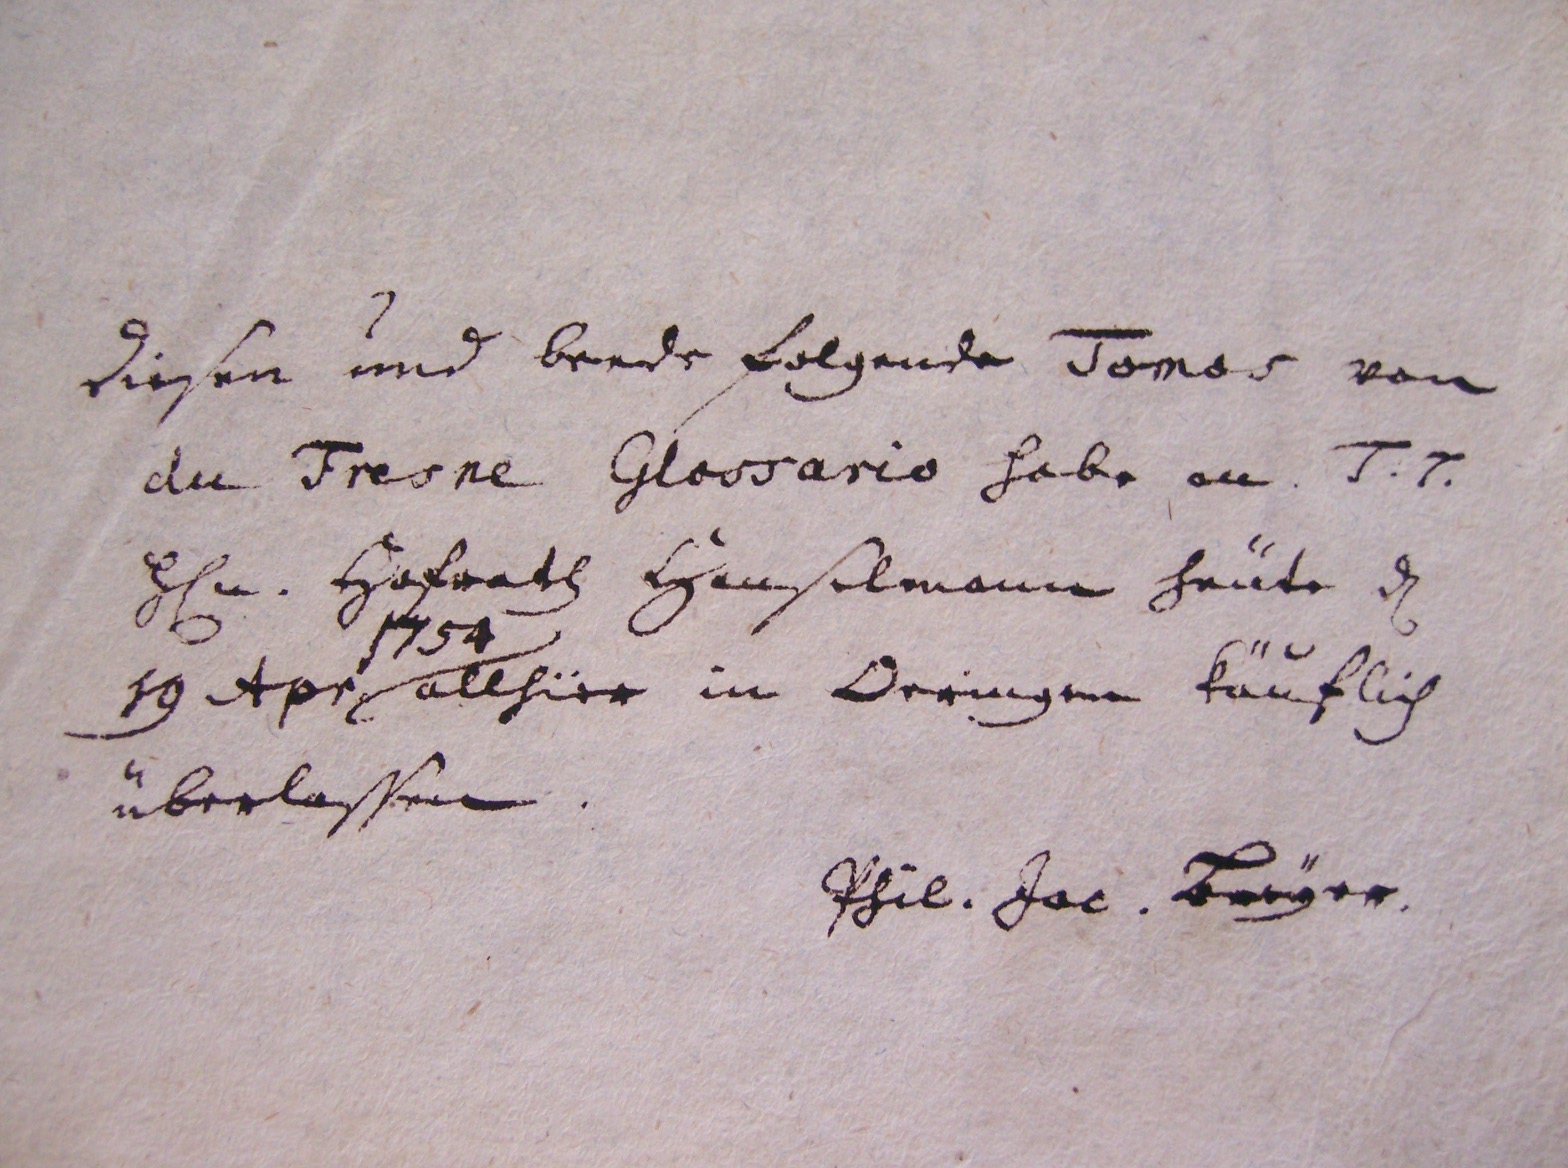 diesen und beede folgende Tomos von
du Fresne Glossario habe an T. T.
Hrn. Hofrath Hanselmann heüte d
1754
19 Apr allhier in Oeringen käuflich
überlassen.
Phil. Jac. Breÿer.